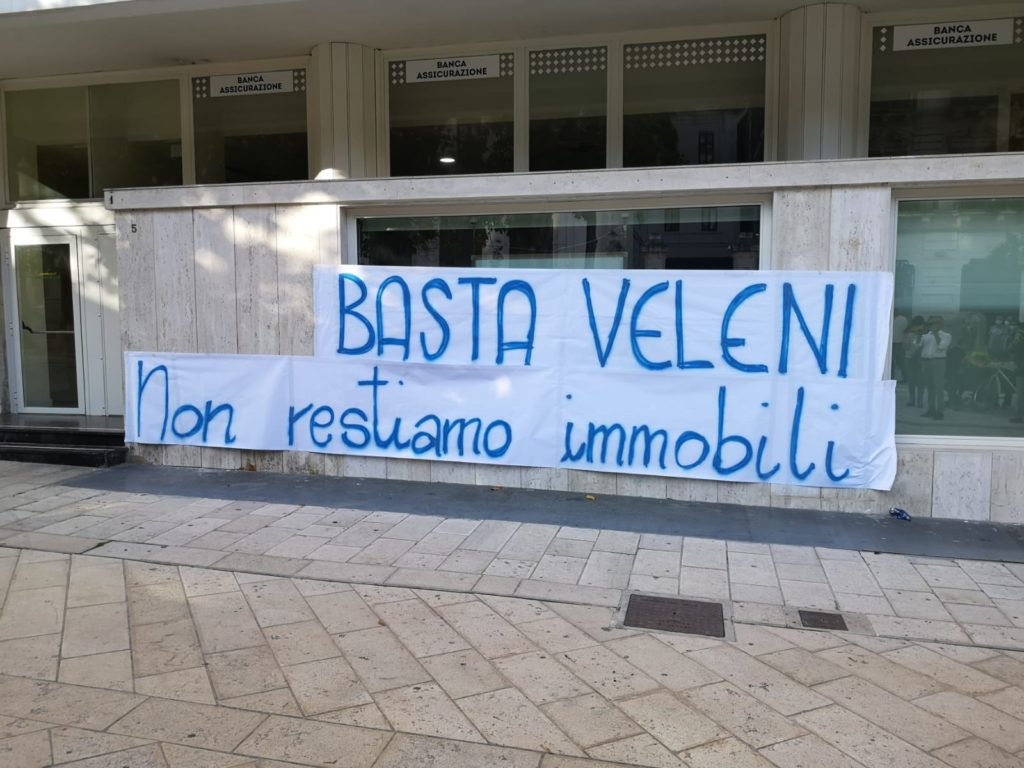 BANCA
ASSICURAZIONE
BANCA
ASSICURAZIONE
BANCA
ASSICURAZIONE
5
BASTA VELENI
Non restiamo immobili